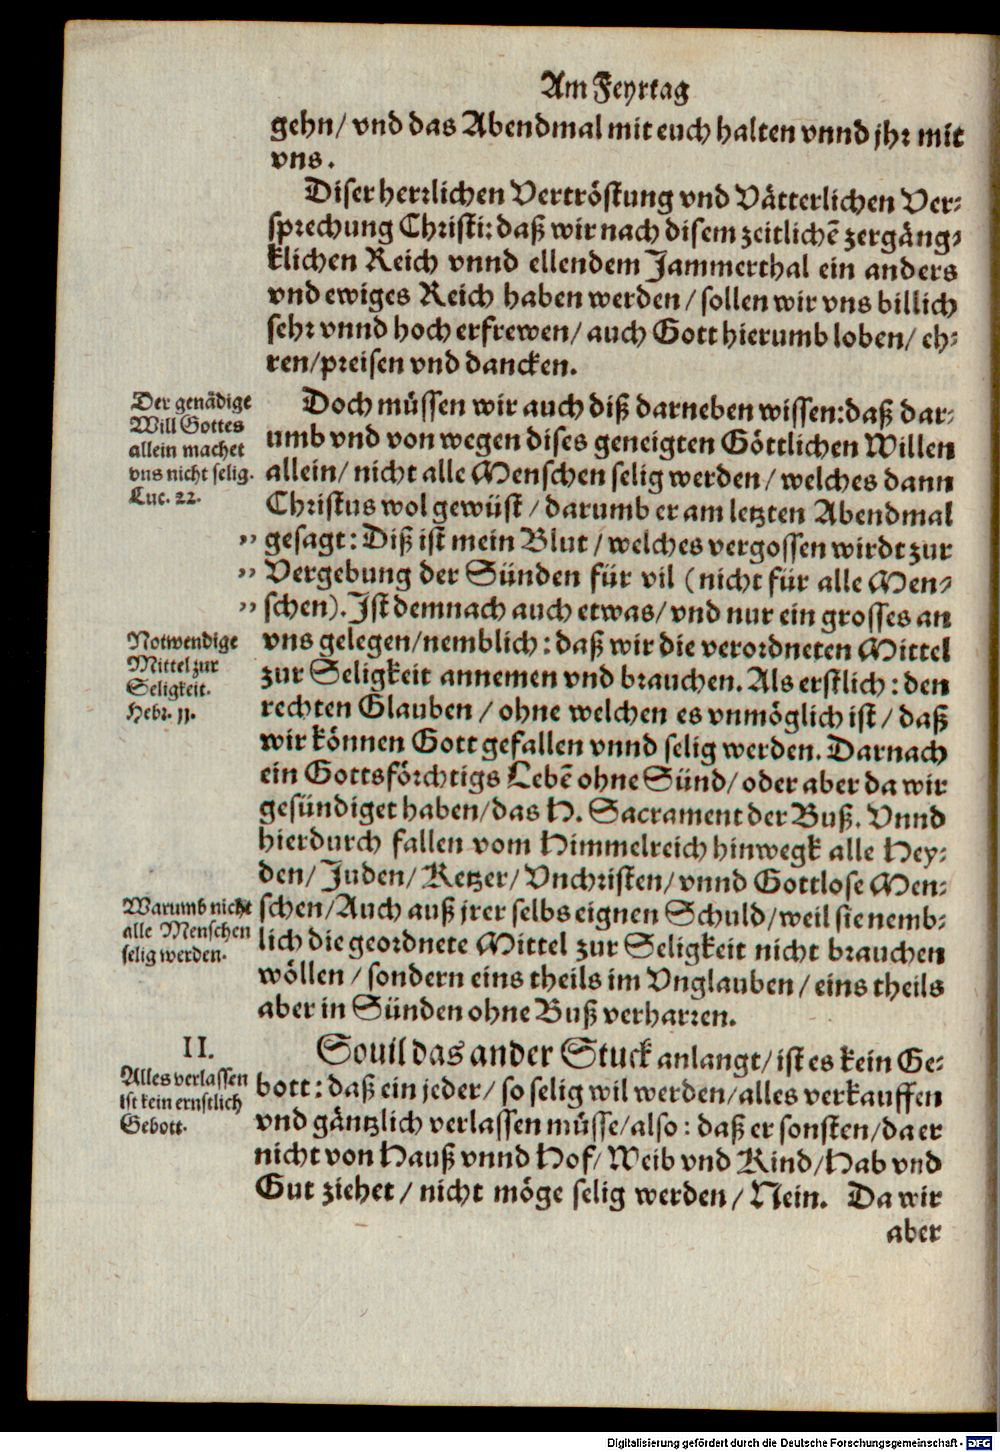 Am Feyrtag
gehn/ vnd das Abendmal mit euch halten vnnd jhr mit
vns.
Diser herrlichen Vertröstung vnd Vätterlichen Ver⸗
sprechung Christi: daß wir nach disem zeitlichẽ zergäng⸗
klichen Reich vnnd ellendem Jammerthal ein anders
vnd ewiges Reich haben werden/ sollen wir vns billich
sehr vnnd hoch erfrewen/ auch Gott hierumb loben/ eh⸗
ren/ preisen vnd dancken.
Der genädige
Will Gottes
allein machet
vns nicht selig.
Luc. 22.
Doch müssen wir auch diß darneben wissen: daß dar⸗
umb vnd von wegen dises geneigten Göttlichen Willen
allein/ nicht alle Menschen selig werden/ welches dann
Christus wol gewüst/ darumb er am letzten Abendmal
„ gesagt: Diß ist mein Blut/ welches vergossen wirdt zur
„ Vergebung der Sünden für vil (nicht für alle Men⸗
„ schen). Ist demnach auch etwas/ vnd nur ein grosses an
Notwendige
Mittel zur
Seligkeit.
Hebr. 11.
vns gelegen/ nemblich: daß wir die verordneten Mittel
zur Seligkeit annemen vnd brauchen. Als erstlich: den
rechten Glauben/ ohne welchen es vnmöglich ist/ daß
wir können Gott gefallen vnnd selig werden. Darnach
ein Gottsförchtigs Lebẽ ohne Sünd/ oder aber da wir
gesündiget haben/ das H. Sacrament der Buß. Vnnd
hierdurch fallen vom Himmelreich hinwegk alle Hey⸗
den/ Juden/ Ketzer/ Vnchristen/ vnnd Gottlose Men⸗
Warumb nicht
alle Menschen
selig werden.
schen/ Auch auß jrer selbs eignen Schuld/ weil sie nemb⸗
lich die geordnete Mittel zur Seligkeit nicht brauchen
wöllen/ sondern eins theils im Vnglauben/ eins theils
aber in Sünden ohne Buß verharren.
II.
Alles verlassen
ist kein ernstlich
Gebott.
Souil das ander Stuck anlangt/ ist es kein Ge⸗
bott: daß ein jeder/ so selig wil werden/ alles verkauffen
vnd gäntzlich verlassen müsse/ also: daß er sonsten/ da er
nicht von Hauß vnnd Hof/ Weib vnd Kind/ Hab vnd
Gut ziehet/ nicht möge selig werden/ Nein. Da wir
aber
Digitalisierung gefördert durch die Deutsche Forschungsgemeinschaft - DFG